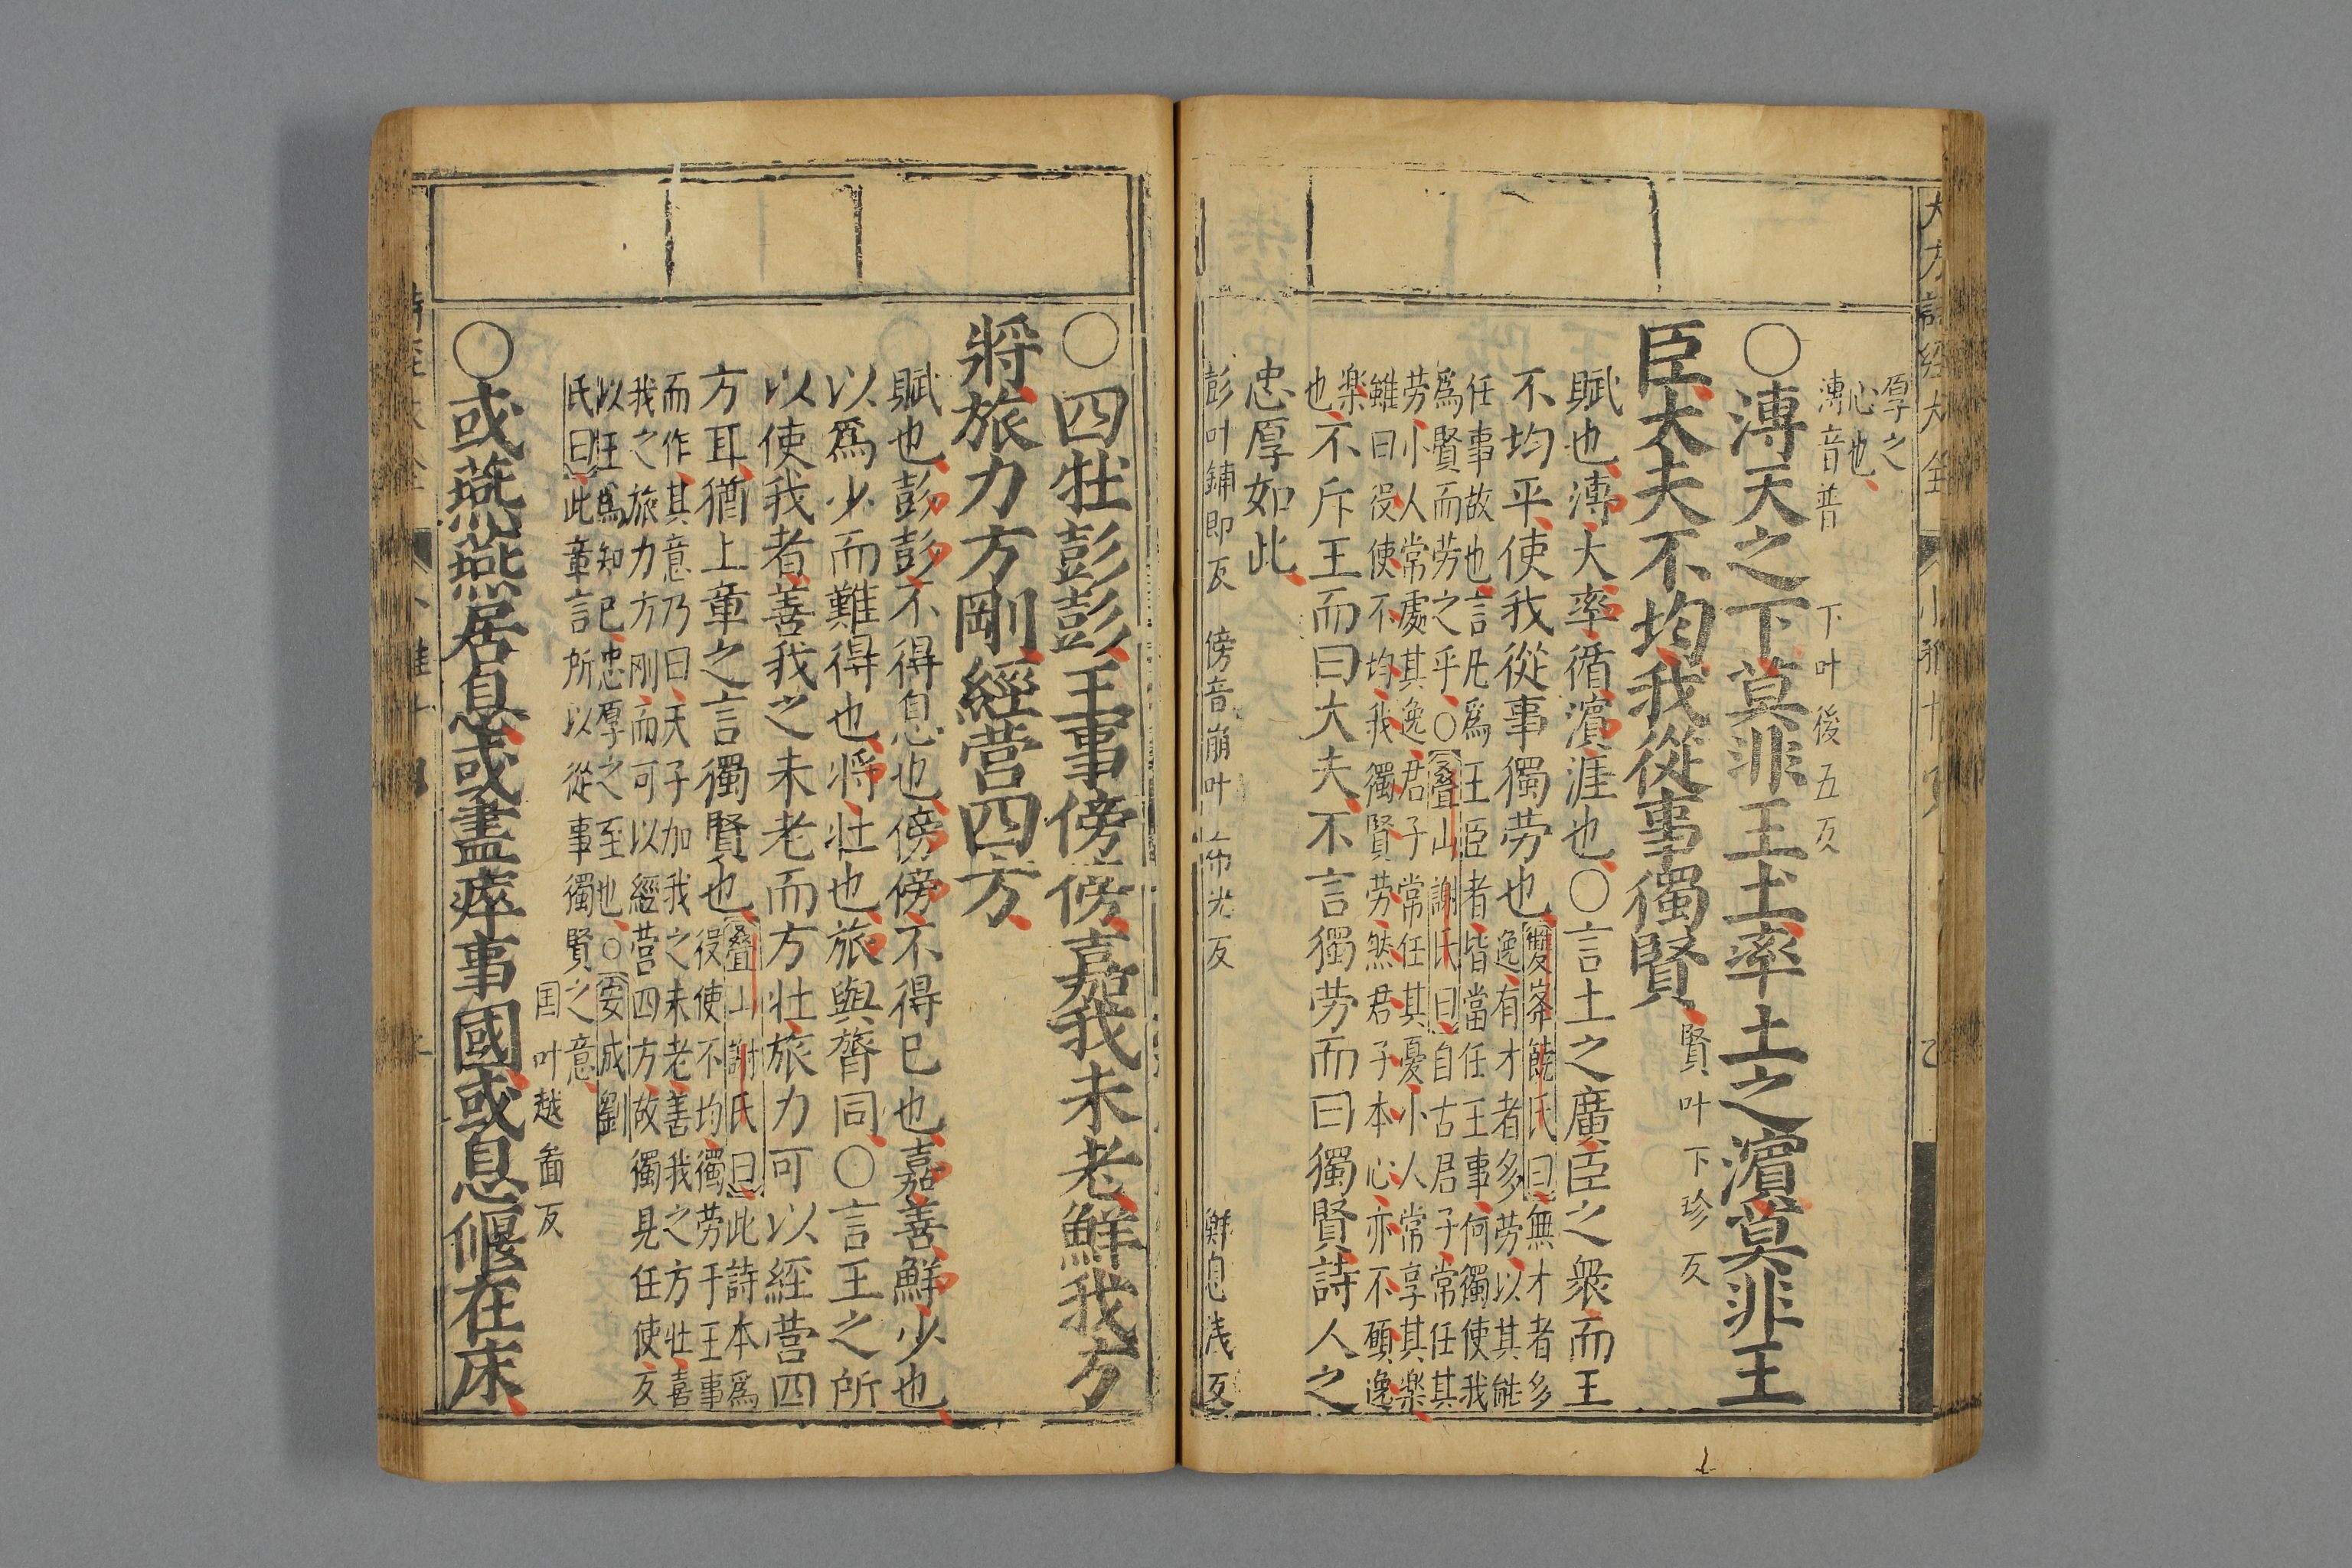 厚之
心也
溥音普　下叶後五反
○溥天之下莫非王土率土之濱莫非王
臣大夫不均我從事獨賢 賢叶下珍反
賦也溥大率循濱涯也○言土之廣臣之衆而王
不均平使我從事獨勞也 雙峯饒氏曰無才者多
逸有才者多勞以其能
任事故也言凡爲王臣者皆當任王事何獨使我
爲賢而劳之乎○叠山謝氏曰自古君子常任其
劳小人常處其逸君子常任其憂小人常享其楽
雖曰役使不均我獨賢劳然君子本心亦不願逸
楽
也 不斥王而曰大夫不言獨劳而曰獨賢詩人之
忠厚如此
彭叶鋪郎反　傍音崩叶布光反　鮮息浅反
○四牡彭彭王事傍傍嘉我未老鮮我方
將旅力方剛經営四方
賦也彭彭不得息也傍傍不得已也嘉善鮮少也
以爲少而難得也将壮也旅與膂同○言王之所
以使我者善我之未老而方壮旅力可以經営四
方耳猶上章之言獨賢也 叠山謝氏曰此詩本爲
役使不均獨劳于王事
而作其意乃曰天子加我之未老善我之方壮喜
我之旅力方刚而可以經営四方故獨見任使反
以王爲知己忠厚之至也○安成劉
氏曰此章言所以從事獨賢之意
国叶越逼反
○或燕燕居息或盡瘁事國或息偃在床